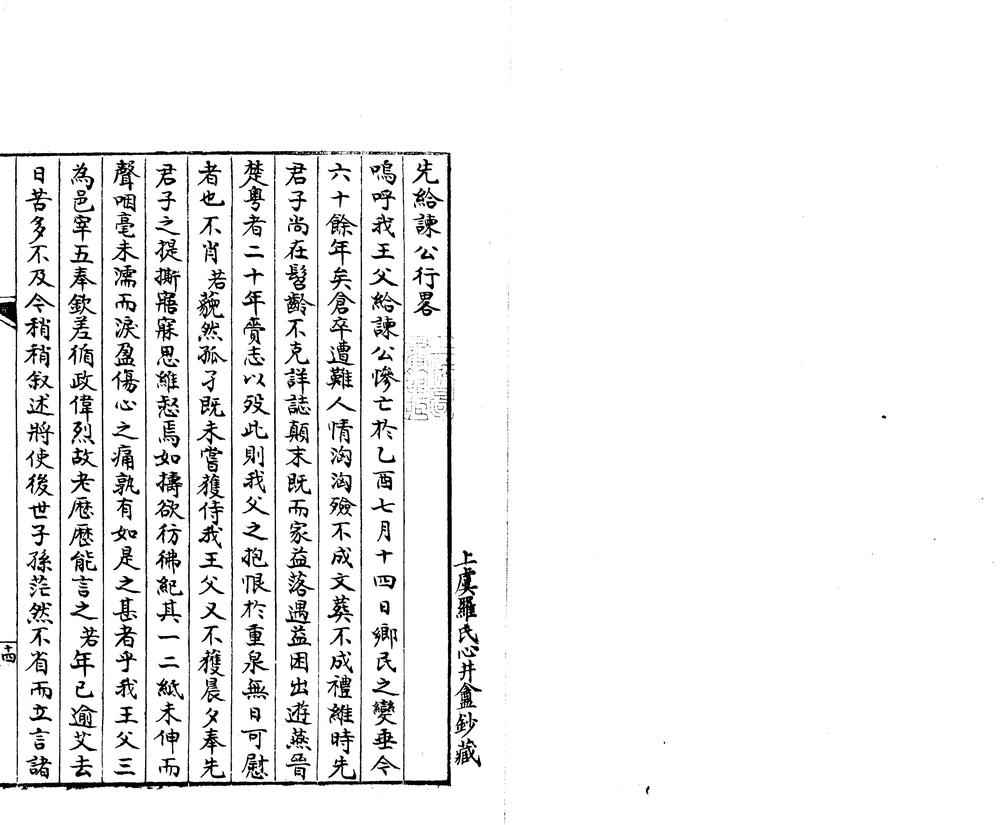 先給諫公行畧
嗚呼我王父給諫公慘亡於乙酉七月十四日鄉民之變垂今
六十餘年矣倉卒遭難人情洶洶殮不成文葬不成禮維時先
君子尚在髫齡不克詳誌顛末既而家益落遇益困出遊燕晉
楚粵者二十年賫志以歿此則我父之抱恨於重泉無日可慰
者也不肖若藐然孤子既未嘗獲侍我王父又不獲晨夕奉先
君子之提撕寤寐思維惄焉如擣欲彷彿紀其一二紙未伸而
聲咽毫未濡而淚盈傷心之痛孰有如是之甚者乎我王父三
為邑宰五奉欽差循政偉烈故老歷歷能言之若年已逾艾去
日苦多不及今稍稍叙述將使後世子孫茫然不省而立言諸
上虞羅氏心井盦鈔藏
十四